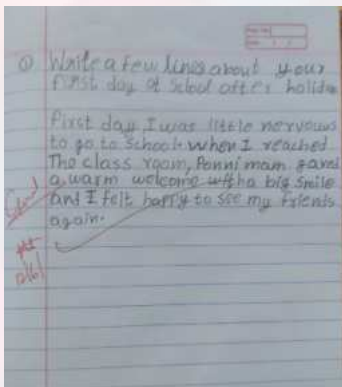 Write a few lines about your
first day of School after holiday
First day I was little nervous
to go to School. when I reached
The class room, Ponni mam gave
a warm welcome with a big Smile
and I felt happy to see my friends
again.
12/6/